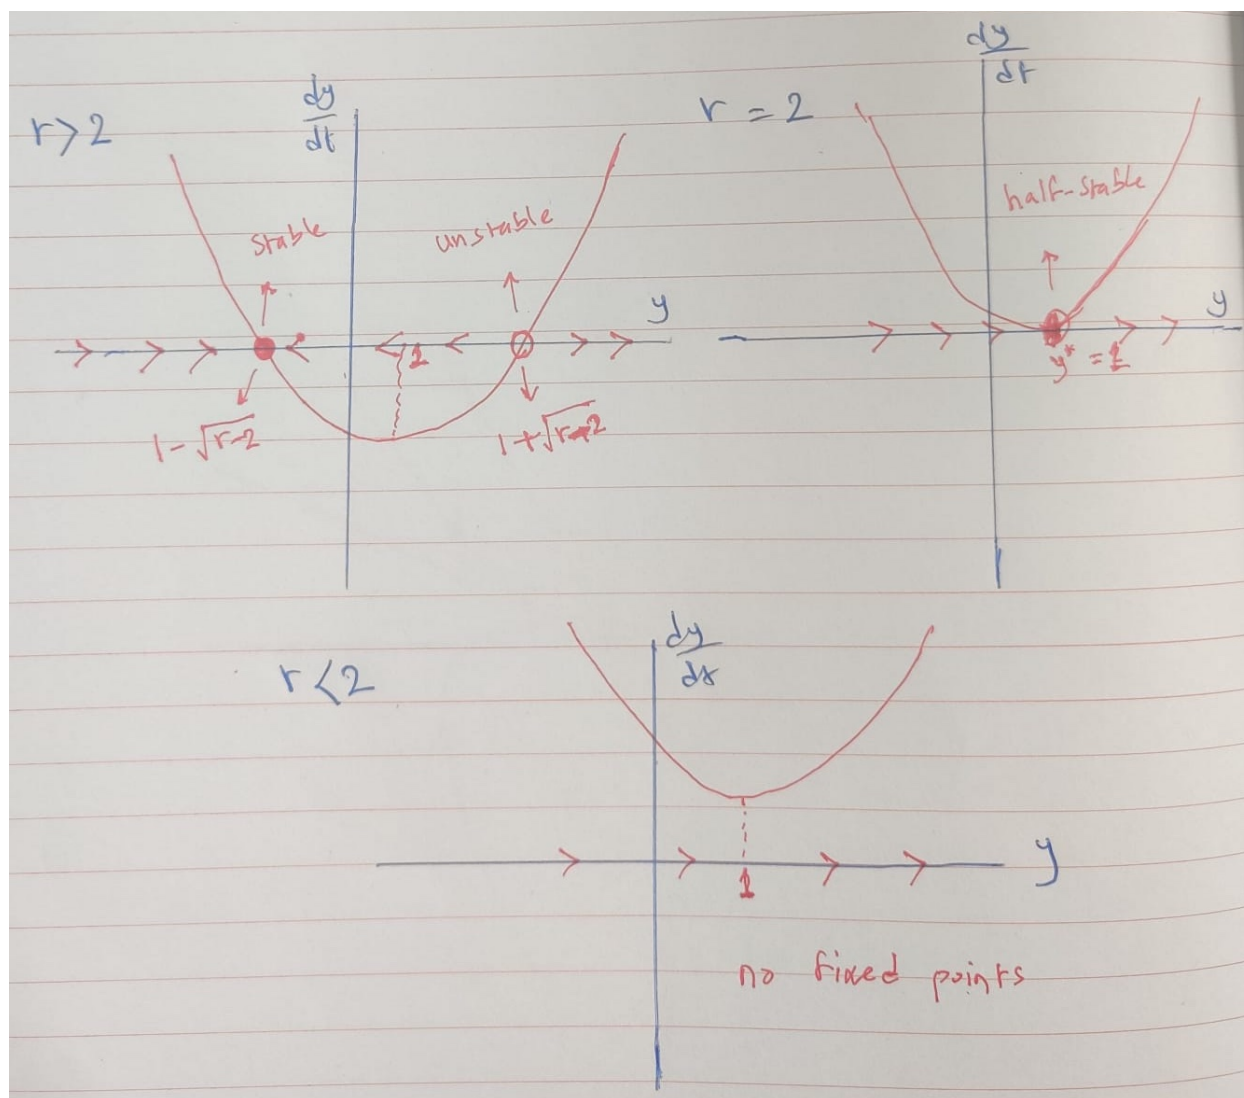 r > 2
dy/dt
stable
unstable
y
1
1 - √(r-2)
1 + √(r-2)
r = 2
dy/dt
half-stable
y
y* = 1
r < 2
dy/dt
y
1
no fixed points